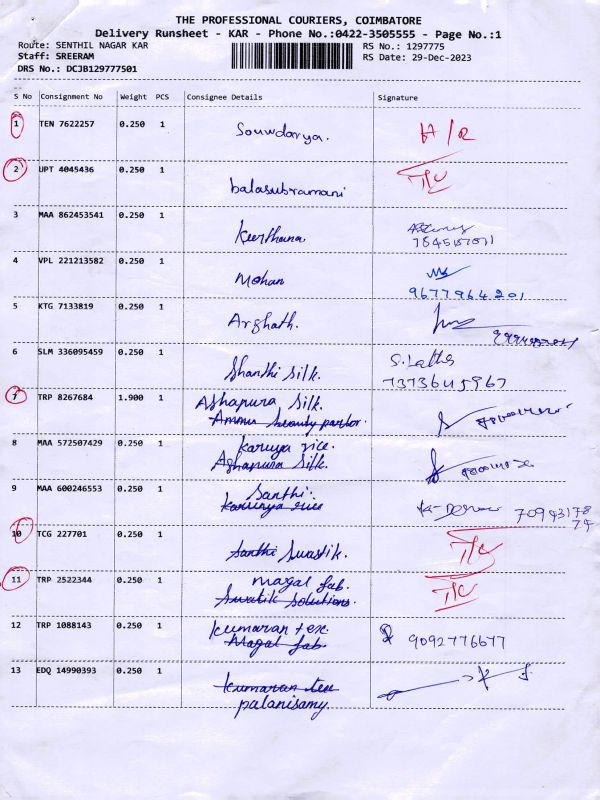 THE PROFESSIONAL COURIERS, COIMBATORE
Delivery Runsheet - KAR - Phone No.:0422-3505555 - Page No.:1
Route: SENTHIL NAGAR KAR RS No.: 1297775
Staff: SREERAM RS Date: 29-Dec-2023
DRS No.: DCJB129777501
S No Consignment No Weight PCS Consignee Details Signature
1 TEN 7622257 0.250 1
Souwdarya.
2 UPT 4045436 0.250 1
balasubramani
3 MAA 862453541 0.250 1
Keerthana
4 VPL 221213582 0.250 1
Mohan
9677964201
5 KTG 7133819 0.250 1
Arghath.
6 SLM 336095459 0.250 1 S. Latha
Shanthi silk. 7373645967
7 TRP 8267684 1.900 1 Ashapura Silk.
Ammu beauty parlor.
8 MAA 572507429 0.250 1 Karuya rice.
Ashapura Silk.
9 MAA 600246553 0.250 1 Santhi.
Karunya rice 70943178
74
10 TCG 227701 0.250 1
Santhi Swastik.
11 TRP 2522344 0.250 1 Magal fab.
Swastik Solutions.
12 TRP 1088143 0.250 1 Kumaran tex
Magal fab. 9092776677
13 EDQ 14990393 0.250 1
Kumaran tex
palanisamy.